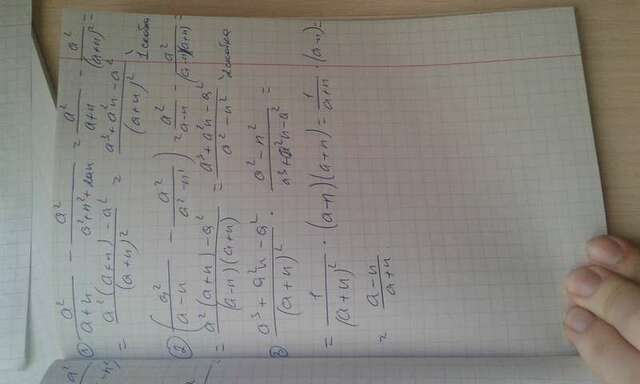 ① a²/(a+n) - a²/(a²+n²+2an) = a²/(a+n) - a²/(a+n)² =
= (a²(a+n) - a²)/(a+n)² = (a³+a²n-a²)/(a+n)²
1 скобка
② (a²/(a-n) - a²/(a²-n²)) = a²/(a-n) - a²/((a-n)(a+n)) =
= (a²(a+n) - a²)/((a-n)(a+n)) = (a³+a²n-a²)/(a²-n²)
2 скобка
③ (a³+a²n-a²)/(a+n)² · (a²-n²)/(a³+a²n-a²) =
= 1/(a+n)² · (a-n)(a+n) = 1/(a+n) · (a-n) =
= (a-n)/(a+n)